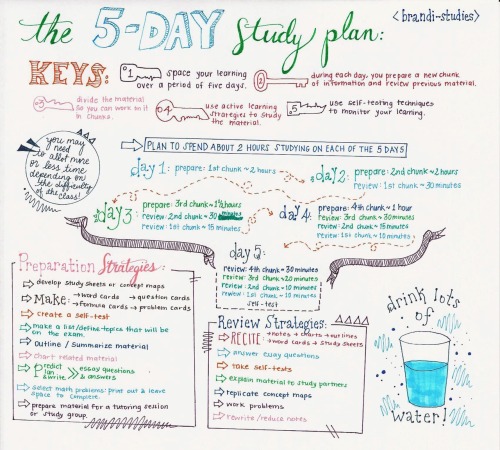 the 5-DAY study plan:
<brandi-studies>
KEYS:
1 space your learning
over a period of five days.
2 during each day, you prepare a new chunk
of information and review previous material.
3 divide the material
so you can work on it
in chunks.
04 use active learning
strategies to study
the material.
5 use self-testing techniques
to monitor your learning.
you may
need
to allot more
or less time
depending on
the difficulty
of the class!
PLAN TO SPEND ABOUT 2 HOURS STUDYING ON EACH OF THE 5 DAYS
day 1: prepare: 1st chunk ~ 2 hours
day 2: prepare: 2nd chunk ~ 2 hours
review: 1st chunk ~ 30 minutes
day 3: prepare: 3rd chunk ~ 1½ hours
review: 2nd chunk ~ 30 minutes
review: 1st chunk ~ 15 minutes
day 4: prepare: 4th chunk ~ 1 hour
review: 3rd chunk ~ 30 minutes
review: 2nd chunk ~ 15 minutes
review: 1st chunk ~ 10 minutes
day 5:
review: 4th chunk ~ 30 minutes
review: 3rd chunk ~ 20 minutes
review: 2nd chunk ~ 10 minutes
review: 1st chunk ~ 10 minutes
self-test
Preparation Strategies:
develop study sheets or concept maps
Make: → word cards → question cards
→ formula cards → problem cards
create a self-test
make a list/define topics that will be
on the exam.
outline / summarize material
chart related material
Predict essay questions
Plan & answers
& write
select math problems: print out & leave
space to complete.
prepare material for a tutoring session
or study group.
Review Strategies:
RECITE: → notes → charts → outlines
→ word cards → study sheets
answer essay questions
take self-tests
explain material to study partners
replicate concept maps
work problems
rewrite/reduce notes
drink lots
of
water!